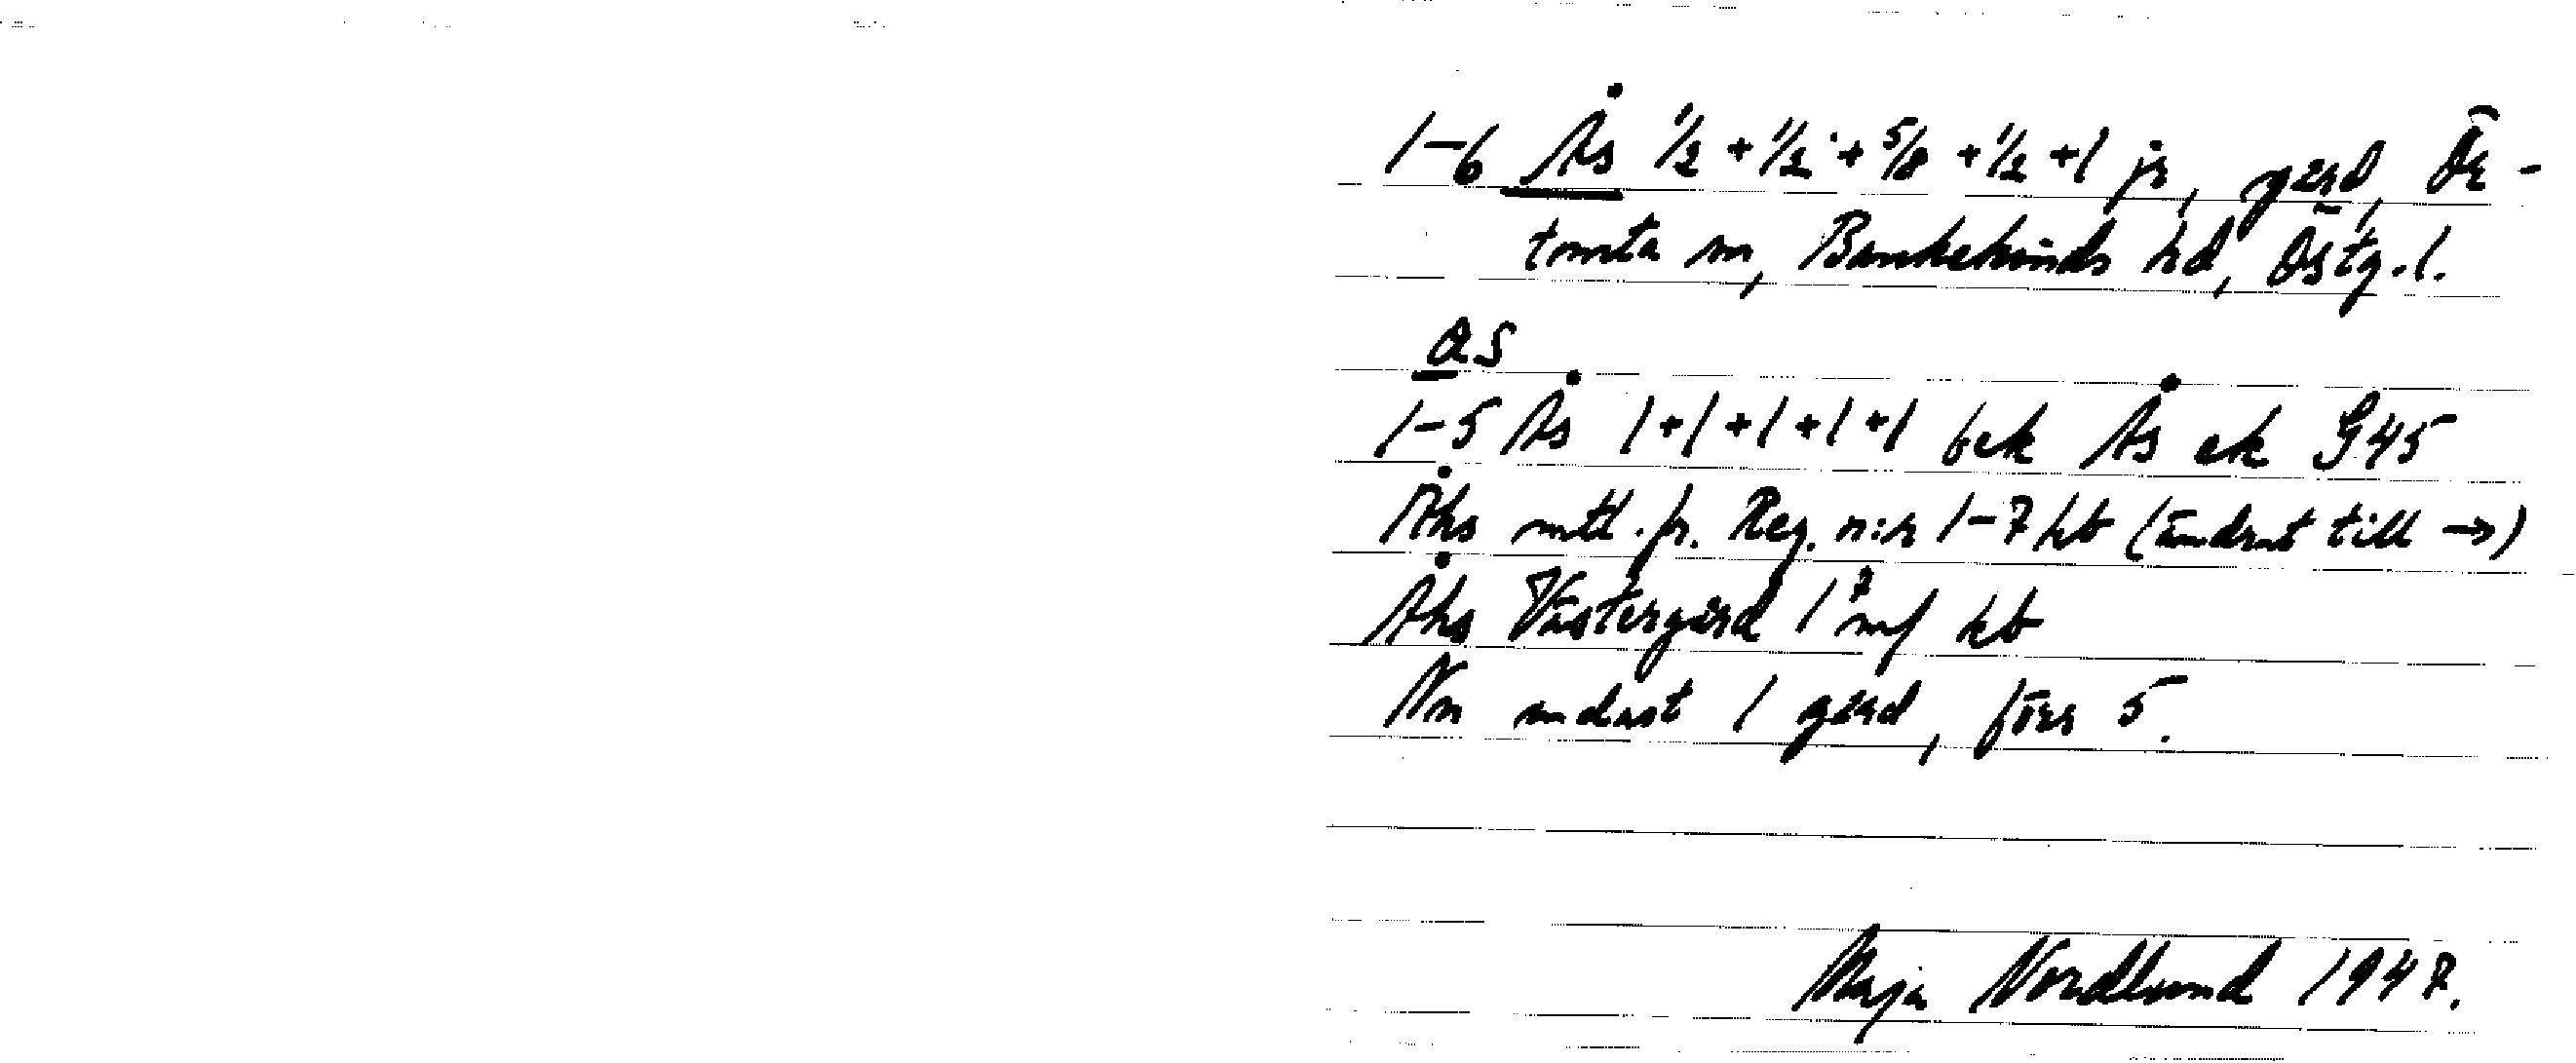 1-6 Ås 1/2 + 1/2 + 5/8 + 1/2 + 1 jr, gård, Ör-
tomta sn, Bankekinds hd, Östg. l.
ås
1-5 Ås 1+1+1+1+1 bek Ås ek G45
Åhs mtl. fr. Reg. n:r 1-7 hb (ändrat till →)
Åhs Västergård 1 mf hb
Nu endast 1 gård, förr 5.
Maja Nordlund 1947.